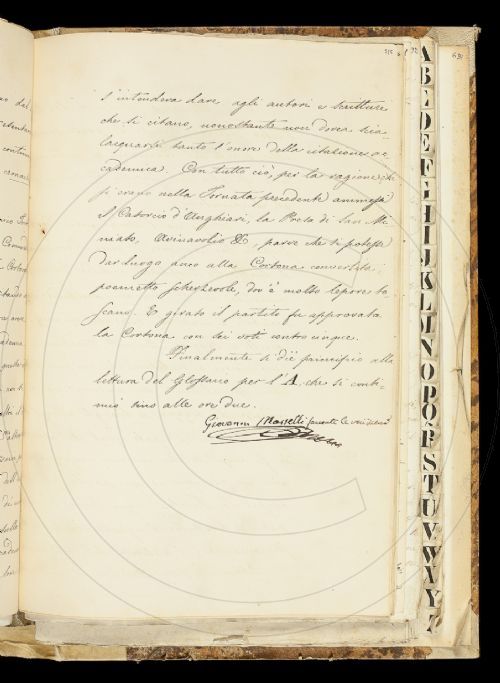 515
92
691
s'intendeva dare agli autori e scritture
che si citano, nonostante non dovea scia-
lacquarsi tanto l'onore della citazione ac-
cademica. Con tutto ciò, per la ragione che
si erano nella Tornata precedente ammessi
il Catorcio d'Anghiari, la Presa di San Mi-
niato, Avinavolio &c, parve che si potesse
dar luogo anco alla Cortona convertita,
poemetto scherzevole, dov'è molto lepore to-
scano. E girato il partito fu approvata
la Cortona con sei voti contro cinque.
Finalmente si diè principio alla
lettura del Glossario per l'A che si conti-
nuò sino alle ore due.
Giovanni
A
B
C
D
E
F
G
H
I
J
K
L
M
N
O
P
Q
R
S
T
U
V
W
X
Y
Z